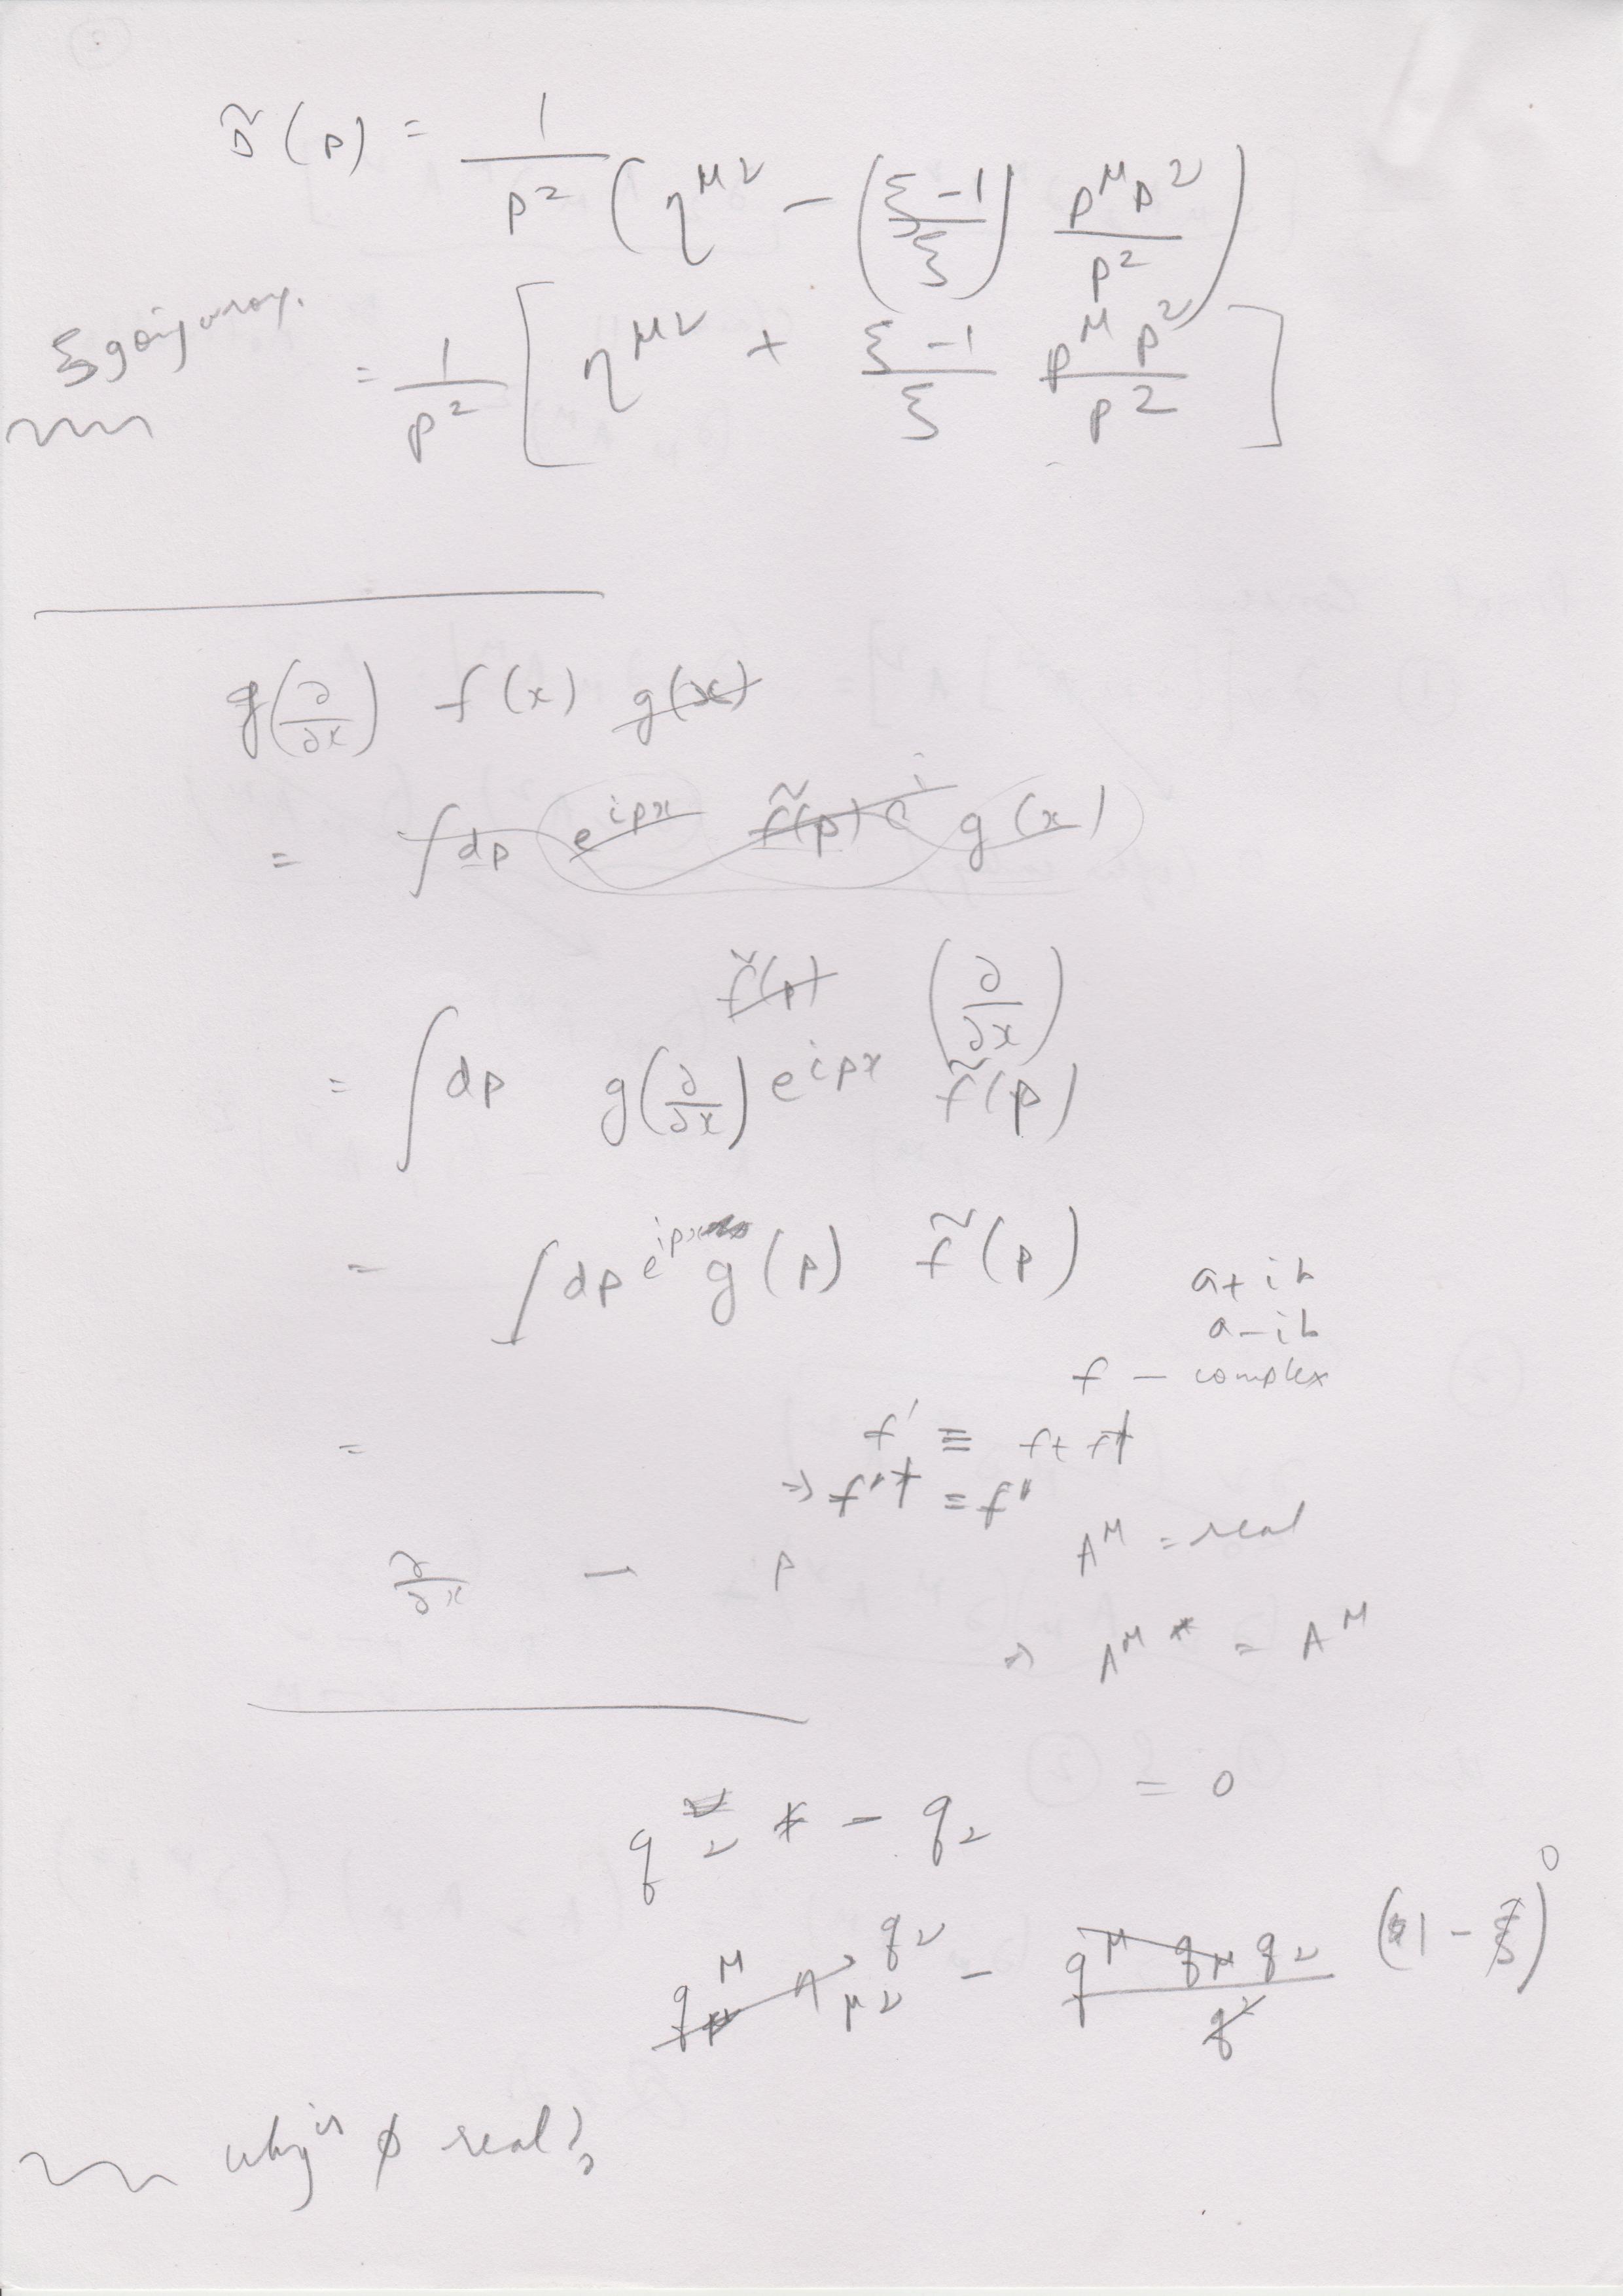 D̃(p) = 1/p² (η^{μν} − ((ξ−1)/ξ) p^μ p^ν/p²)
ξ going wrong.
= 1/p² [η^{μν} + (ξ−1)/ξ p^μ p^ν/p²]
g(∂/∂x) f(x) g(x)
= ∫dp e^{ipx} f̃(p) e^i g(x)
f̃(p) (∂/∂x)
= ∫dp g(∂/∂x) e^{ipx} f̃(p)
= ∫dp e^{ipx} g(p) f̃(p)
a + ib
a − ib
f – complex
= f' ≡ f + f†
⇒ f'† = f'
A^μ = real
∂/∂x – p
⇒ A^μ* = A^μ
= 0
q_ν * − q_ν
q^μ η_{μν} q_ν − q^μ q_μ q_ν/q² (1 − ξ) 0
why is ϕ real?